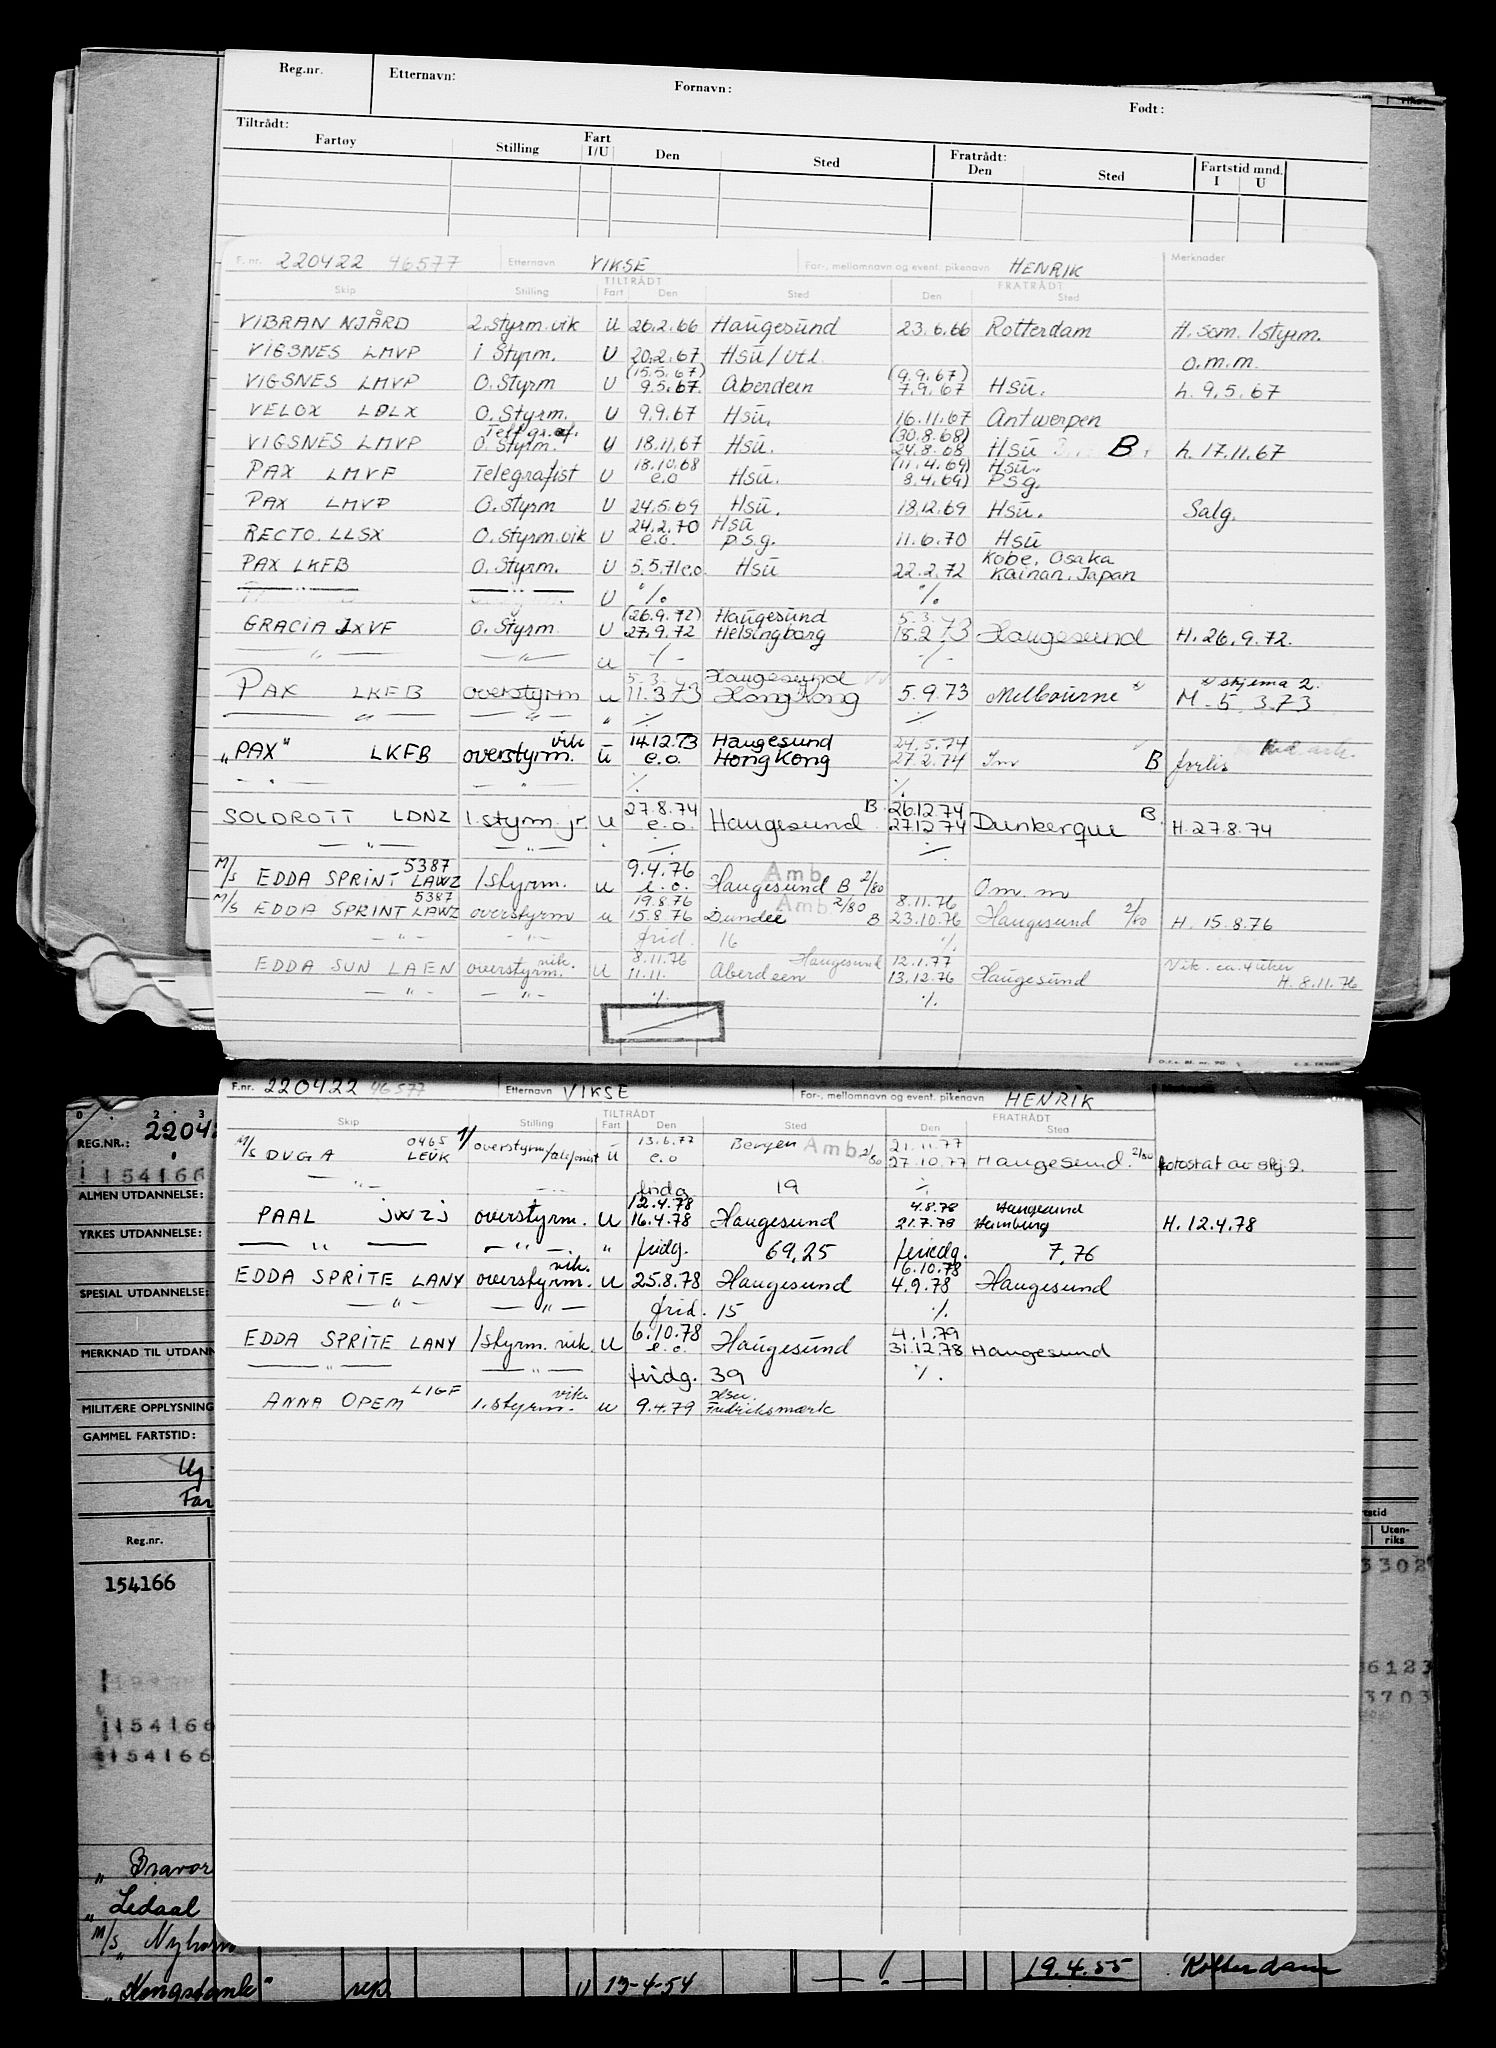 Reg.nr. Etternavn: Fornavn: Født:
Tiltrådt: Fratrådt: Fartstid mnd.
Fartøy Stilling Fart I/U Den Sted Den Sted I U
F. nr. 220422 46577 Etternavn VIKSE For-, mellomnavn og event. pikenavn HENRIK Merknader
TILTRÅDT FRATRÅDT
Skip Stilling Fart Den Sted Den Sted
VIBRAN NJÅRD 2.styrm.vik U 26.2.66 Haugesund 23.6.66 Rotterdam H. som 1styrm.
VIGSNES LMVP 1 Styrm. U 20.2.67 Hsu/utl. o.m.m.
(15.5.67) (9.9.67)
VIGSNES LMVP O.Styrm U 9.5.67 Aberdeen 7.9.67 Hsu. h. 9.5.67
VELOX LDLX O.Styrm. U 9.9.67 Hsu. 16.11.67 Antwerpen
Telegraf. (30.8.68)
VIGSNES LMVP O.Styrm. U 18.11.67 Hsu. 24.8.68 Hsu B h. 17.11.67
18.10.68 (11.4.69) Hsu.
PAX LMVP Telegrafist U e.o Hsu. 8.4.69) P.S.g.
PAX LMVP O.Styrm U 24.5.69 Hsu. 18.12.69 Hsu. Salg.
24.2.70 Hsu
RECTO. LLSX O.Styrm.vik U e.o. p.s.g. 11.6.70 Hsu
Kobe, Osaka
PAX LKFB O.Styrm. U 5.5.71 e.o. Hsu 22.2.72 Kainan, Japan
— " — U ./. ./.
(26.9.72) Haugesund 5.3.
GRACIA JXVF O.Styrm U 27.9.72 Helsingborg 18.2.73 Haugesund H. 26.9.72.
— " — — " — U ./. ./.
5.3. Haugesund * skjema 2.
PAX LKFB overstyrm u 11.3.73 Hong Kong 5.9.73 Melbourne * M. 5.3.73
— " — — " — " ./. ./.
vik 14.12.73 Haugesund 24.5.74
"PAX" LKFB overstyrm. u e.o. Hong Kong 27.2.74 B forlis
- " - - " - ./. ./.
27.8.74 B. 26.12.74 B.
SOLDROTT LDNZ 1.styrm. jr. u e.o. Haugesund 27.12.74 Dunkerque H. 27.8.74
— " — — " — ./. ./.
5387 9.4.76 Amb.
M/S EDDA SPRINT LAWZ 1styrm. u e.o. Haugesund B 2/80 Om. m
5387 19.8.76 Amb. 2/80 8.11.76
M/S EDDA SPRINT LAWZ overstyrm u 15.8.76 Dundee B 23.10.76 Haugesund 2/80 H. 15.8.76
— " — — " — frid. 16 ./.
vik. 8.11.76 Haugesund 12.1.77 Vik. ca. 4 uker
EDDA SUN LAEN overstyrm. U 11.11. Aberdeen 13.12.76 Haugesund H. 8.11.76
— " — — " — ./. ./.
F.nr. 220422 46577 Etternavn VIKSE For-, mellomnavn og event. pikenavn HENRIK
TILTRÅDT FRATRÅDT
Skip Stilling Fart Den Sted Den Sted
0465 1/ 13.6.77 Bergen Amb. 2/80 21.11.77
M/S DUGA LEUK overstyrm u e.o 27.10.77 Haugesund. 2/80 fotostat av skj 2.
— " — fridg 19 ./.
12.4.78 4.8.78 Haugesund
PAAL JWZJ overstyrm. U 16.4.78 Haugesund 21.7.78 Hamburg H. 12.4.78
— " — — " — " fridg. 69,25 feriedg. 7,76
vik. 6.10.78
EDDA SPRITE LANY overstyrm. U 25.8.78 Haugesund 4.9.78 Haugesund
— " — — " — frid. 15 ./.
6.10.78 4.1.79
EDDA SPRITE LANY 1styrm. vik. U e.o. Haugesund 31.12.78 Haugesund
— " — — " — fridg. 39 ./.
LIGF vik. Hsu.
ANNA OPEM 1.styrm. u 9.4.79 Fredriksmark
0 . 2 . 3
REG.NR.: 2204
154166
ALMEN UTDANNELSE:
YRKES UTDANNELSE:
SPESIAL UTDANNELSE:
MERKNAD TIL UTDANN
MILITÆRE OPPLYSNING
GAMMEL FARTSTID:
Far
Reg.nr. Uten-riks
154166 3302
6123
3703
154166
154166
" Bravor
"Ledaal
M/S "Nyhorn
"Kongstank" rep. U 13-4-54 19.4.55 Rotterdam